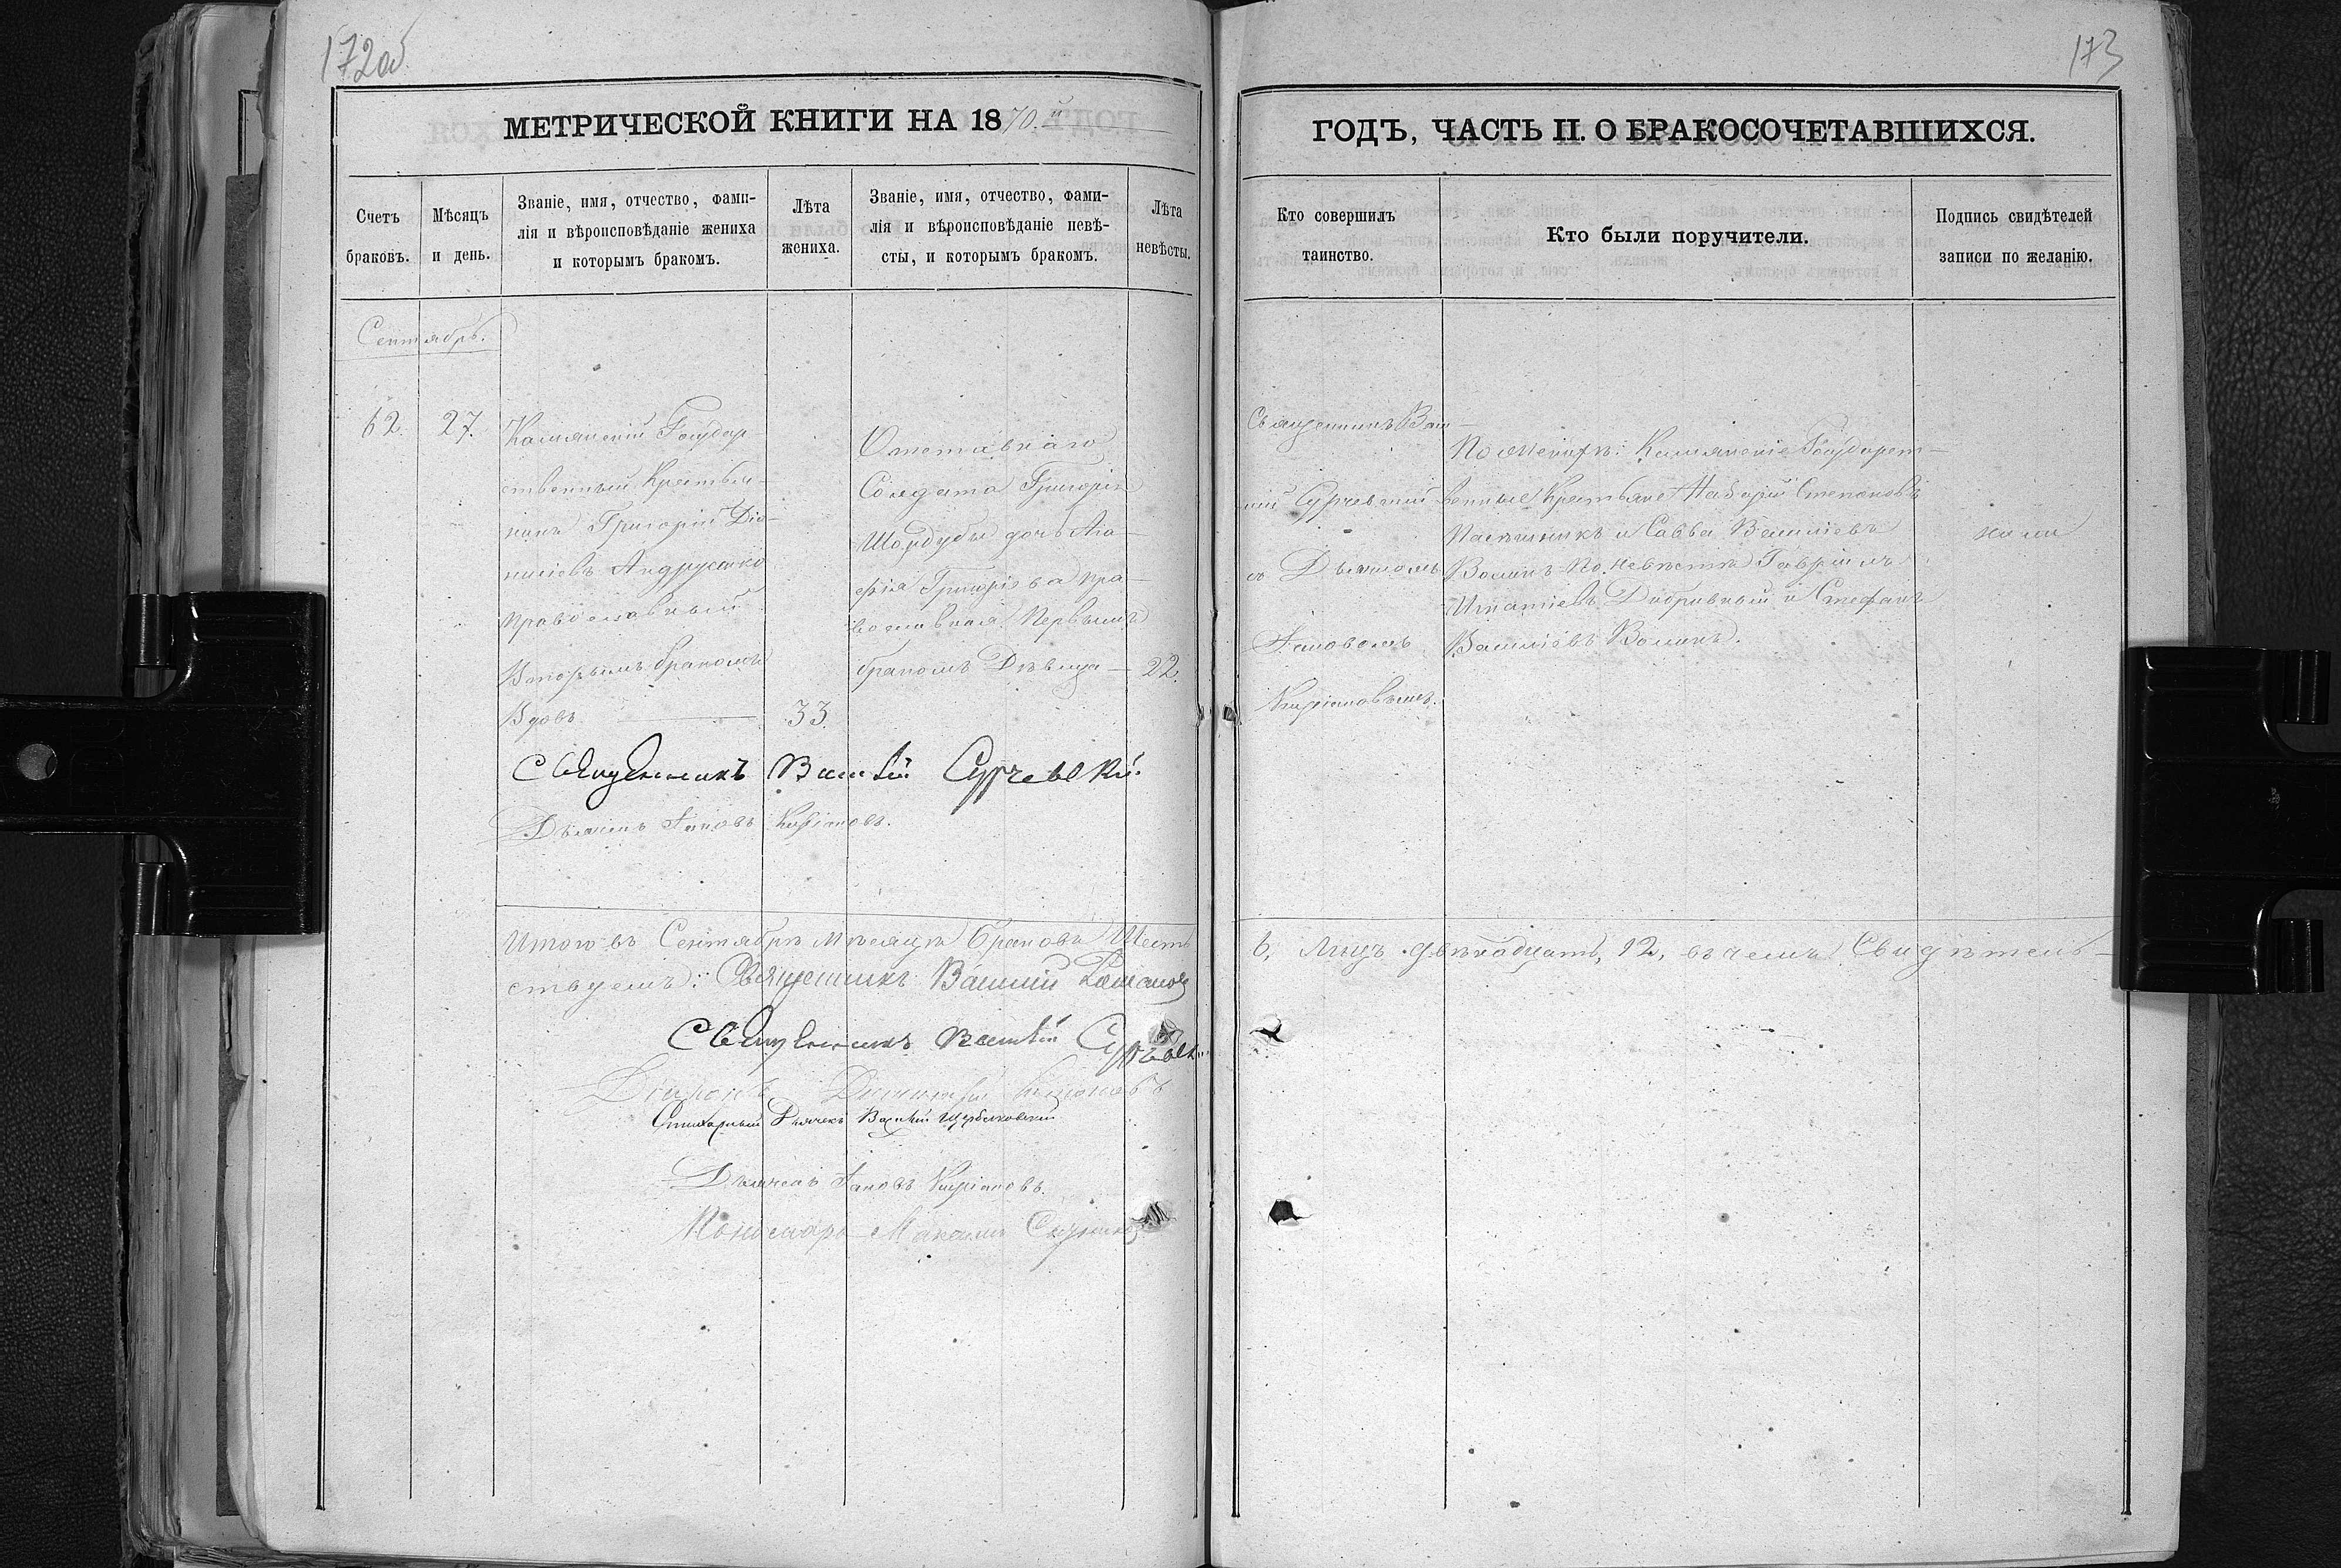 172об
173
МЕТРИЧЕСКОЙ КНИГИ НА 1870.й
ГОДЪ, ЧАСТЬ II. О БРАКОСОЧЕТАВШИХСЯ.
Счетъ
браковъ.
Мѣсяцъ
и день.
Званіе, имя, отчество, фами-
лія и вѣроисповѣданіе жениха
и которымъ бракомъ.
Лѣта
жениха.
Званіе, имя, отчество, фами-
лія и вѣроисповѣданіе невѣ-
сты, и которымъ бракомъ.
Лѣта
невѣсты.
Кто совершилъ
таинство.
Кто были поручители.
Подпись свидѣтелей
записи по желанію.
Сентябрь.
62.
27.
Государ-
ственный Крестья-
нинъ Григорій Діо-
нисіевъ Андрусенко
православный
Вторымъ бракомъ
Вдовъ
33.
Отставнаго
Солдата Григорія
Шолудубы дочь Ага-
фія Григоріева пра-
вославная Первымъ
бракомъ Дѣвица
22.
Священникъ Васи-
лій Сурчевскій
съ Дьячкомъ
Іаковомъ
Кипріановымъ.
По женихѣ: Государст-
венные Крестьяне Степановъ
Пасѣшникъ и Савва Василіевъ
Волинъ По невѣстѣ Гавріилъ
Игнатіевъ Дибривный и Стефанъ
Василіевъ Волинъ.
Священникъ Василій Сурчевскій.
Дьячекъ Іаковъ Кипріановъ.
Итого въ Сентябрѣ мѣсяцѣ браковъ Шесть
6, Лицъ двѣнадцать, 12, въ чемъ Свидѣтель-
ствуемъ: Священникъ Василій
Священникъ Василій Сурчевскій
Діаконъ Димитрій
Стихарный Дьячекъ Василій
Дьячекъ Іаковъ Кипріановъ.
Пономарь Максимъ